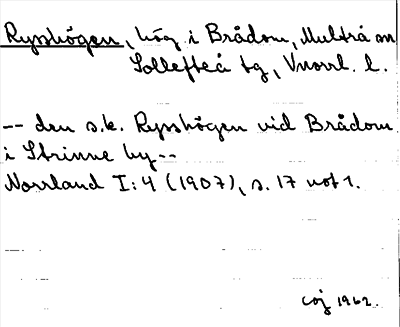 Rysshögen, hög i Brådom, Multrå sn
Sollefteå tg, Vnorrl. l.
-- den s.k. Rysshögen vid Brådom
i Strinne by --
Norrland I:4 (1907), s. 17 not 1.
Coj 1962.